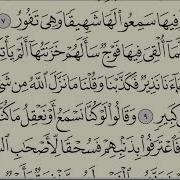 فِيهَا سَمِعُوا۟ لَهَا شَهِيقًا وَهِىَ تَفُورُ ٧
مَآ أُلْقِىَ فِيهَا فَوْجٌ سَأَلَهُمْ خَزَنَتُهَآ أَلَمْ يَأْ
ءَنَا نَذِيرٌ فَكَذَّبْنَا وَقُلْنَا مَا نَزَّلَ ٱللَّهُ مِن شَىْ
كَبِيرٍ ٩ وَقَالُوا۟ لَوْ كُنَّا نَسْمَعُ أَوْ نَعْقِلُ مَا كُنَّا
فَٱعْتَرَفُوا۟ بِذَنۢبِهِمْ فَسُحْقًا لِّأَصْحَٰبِ